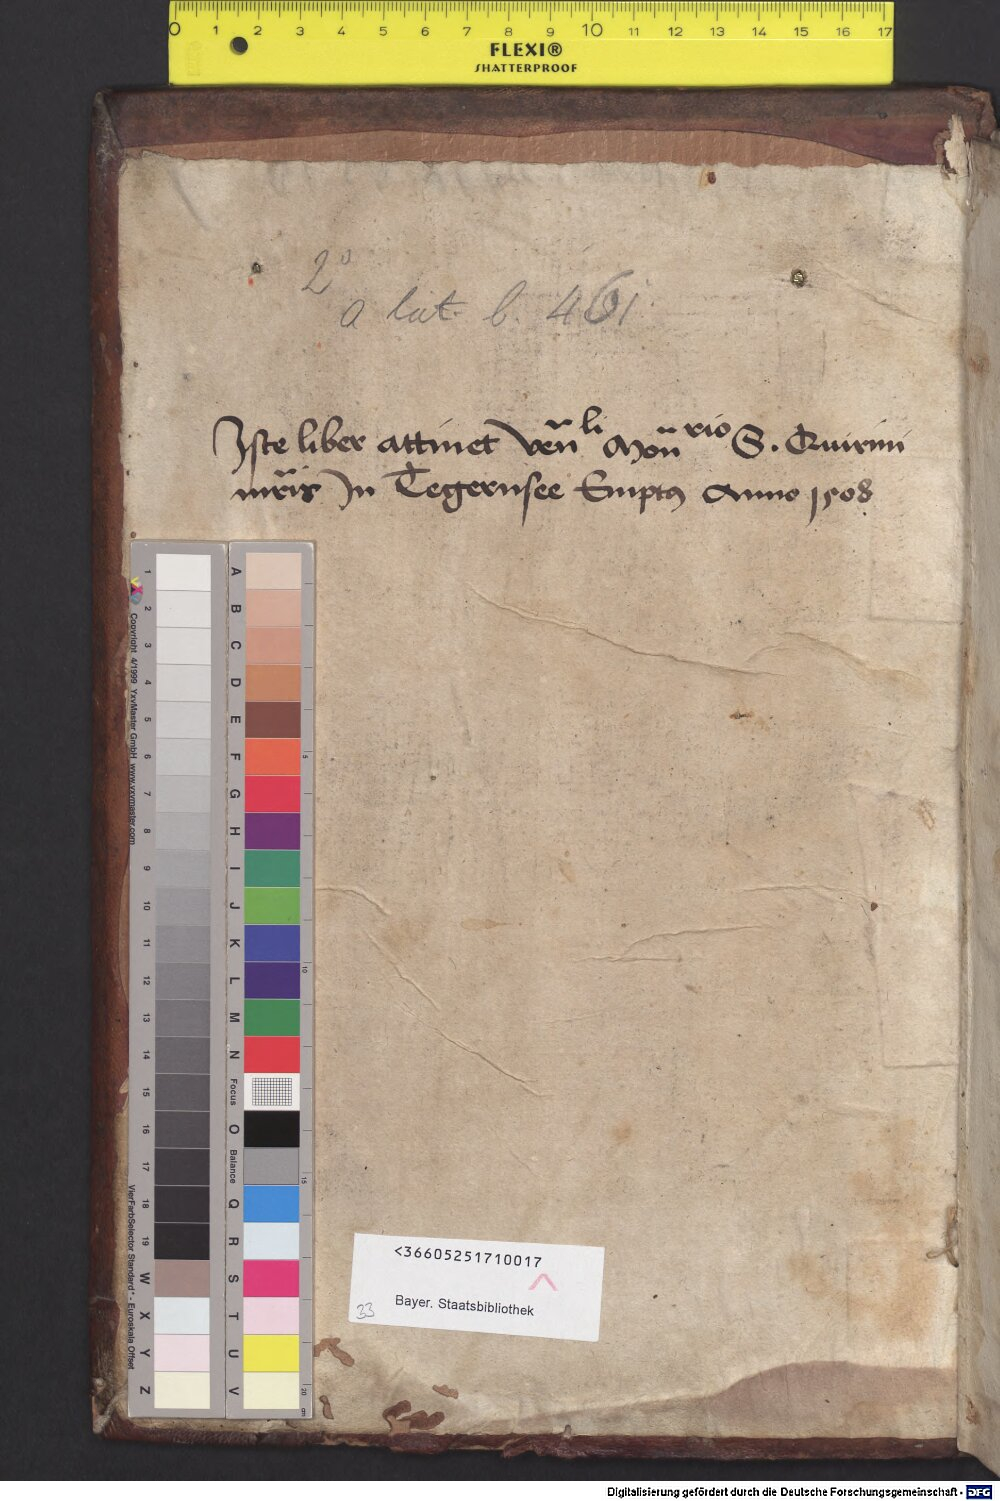 0 1 2 3 4 5 6 7 8 9 10 11 12 13 14 15 16 17
FLEXI®
SHATTERPROOF
2°
a lat. b. 461
Iste liber attinet Ven̄li Mon̄rio S. Quirini
mr̄is In Tegernsee Emptꝰ Anno 1508
1 2 3 4 5 6 7 8 9 10 11 12 13 14 15 16 17 18 19 W X Y Z
A B C D E F G H I J K L M N Focus O Balance Q R S T U V
5 10 15 20 cm
Copyright 4/1999 YxyMaster GmbH www.yxymaster.com
VierFarbSelector Standard* - Euroskala Offset
<36605251710017
33
Bayer. Staatsbibliothek
Digitalisierung gefördert durch die Deutsche Forschungsgemeinschaft - DFG